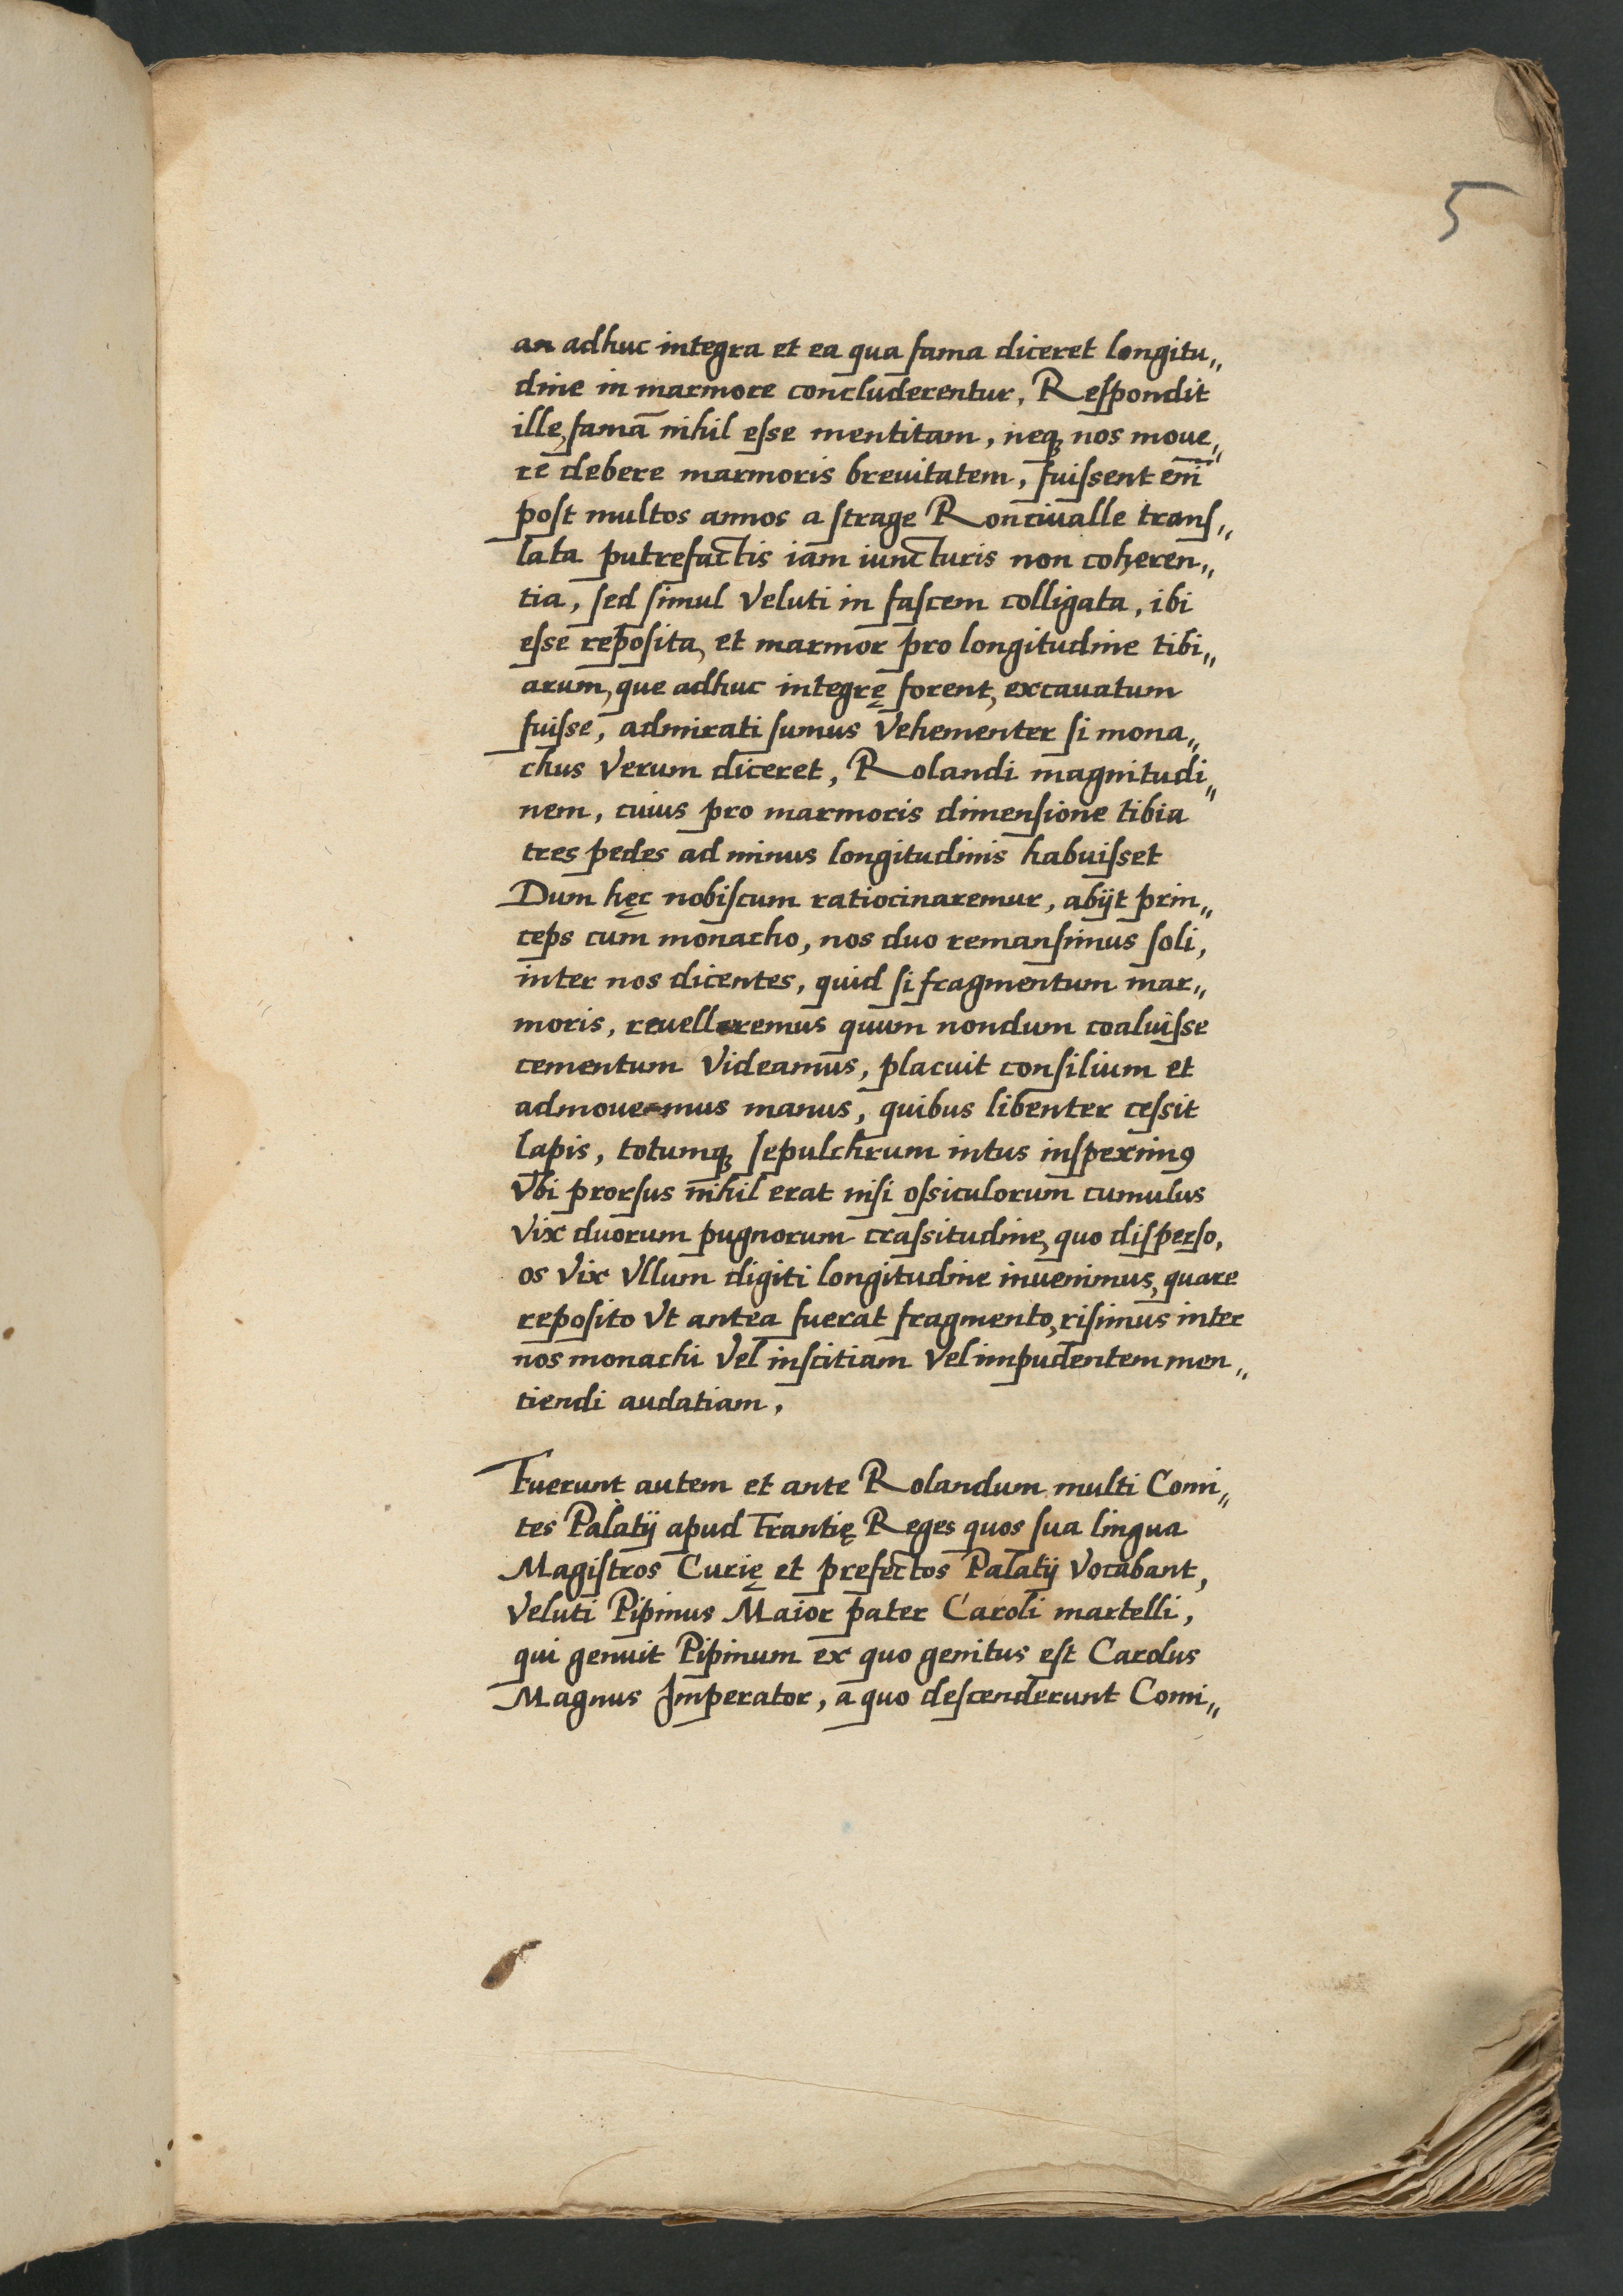 5
an adhuc integra et ea qua fama diceret longitu„
dine in marmore concluderentur, Reſpondit
ille, famā nihil eſse mentitam, neqꝫ nos moue„
re debere marmoris breuitatem, fuiſsent em̅
poſt multos annos a ſtrage Ronciualle tranſ„
lata putrefactis iam iuncturis non coheren„
tia, ſed ſimul veluti in faſcem colligata, ibi
eſse repoſita, et marmor pro longitudine tibi„
arum, que adhuc integrę forent, excauatum
fuiſse, admirati ſumus vehementer ſi mona„
chus verum diceret, Rolandi magnitudi„
nem, cuius pro marmoris dimenſione tibia
tres pedes ad minus longitudinis habuiſset
Dum hęc nobiſcum ratiocinaremur, abijt prin„
ceps cum monacho, nos duo remanſimus ſoli,
inter nos dicentes, quid ſi fragmentum mar„
moris, reuelleremus quum nondum coaluiſse
cementum videamus, placuit conſilium et
admouemus manus, quibus libenter ceſsit
lapis, totumqꝫ ſepulchrum intus inſpeximꝰ
vbi prorſus nihil erat niſi oſsiculorum cumulus
vix duorum pugnorum craſsitudine, quo diſperſo,
os vix vllum digiti longitudine inuenimus, quare
repoſito vt antea fuerat fragmento, riſimus inter
nos monachi vel inſcitiam vel impudentem men„
tiendi audatiam,
Fuerunt autem et ante Rolandum multi Comi„
tes Palatij apud Frantię Reges quos ſua lingua
Magiſtros Curię et prefectos Palatij vocabant,
veluti Pipinus Maior pater Caroli martelli,
qui genuit Pipinum ex quo genitus eſt Carolus
Magnus Imperator, a quo deſcenderunt Comi„